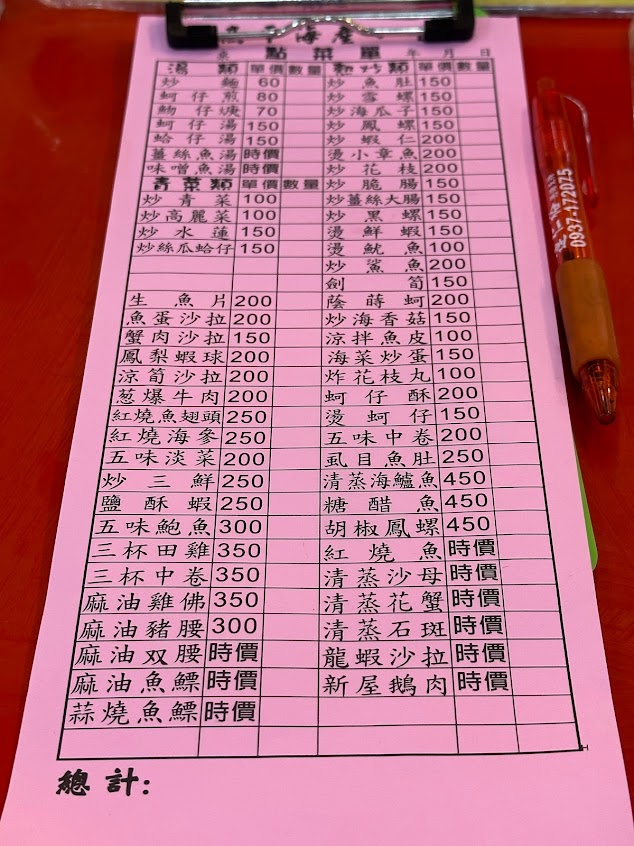 海產
點菜單 年 月 日
湯類 單價 數量
炒麵 60
蚵仔煎 80
魩仔焿 70
蚵仔湯 150
蛤仔湯 150
薑絲魚湯 時價
味噌魚湯 時價
青菜類 單價 數量
炒青菜 100
炒高麗菜 100
炒水蓮 150
炒絲瓜蛤仔 150
生魚片 200
魚蛋沙拉 200
蟹肉沙拉 150
鳳梨蝦球 200
涼筍沙拉 200
葱爆牛肉 200
紅燒魚翅頭 250
紅燒海參 250
五味淡菜 200
炒三鮮 250
鹽酥蝦 250
五味鮑魚 300
三杯田雞 350
三杯中卷 350
麻油雞佛 350
麻油豬腰 300
麻油双腰 時價
麻油魚鰾 時價
蒜燒魚鰾 時價
熱炒類 單價 數量
炒魚肚 150
炒雪螺 150
炒海瓜子 150
炒鳳螺 150
炒蝦仁 200
燙小章魚 200
炒花枝 200
炒脆腸 150
炒薑絲大腸 150
炒黑螺 150
燙鮮蝦 150
燙魷魚 100
炒鯊魚 200
劍筍 150
蔭蒔蚵 200
炒海香菇 150
涼拌魚皮 100
海菜炒蛋 150
炸花枝丸 100
蚵仔酥 200
燙蚵仔 150
五味中卷 200
虱目魚肚 250
清蒸海鱸魚 450
糖醋魚 450
胡椒鳳螺 450
紅燒魚 時價
清蒸沙母 時價
清蒸花蟹 時價
清蒸石斑 時價
龍蝦沙拉 時價
新屋鵝肉 時價
總計:
0937-172075